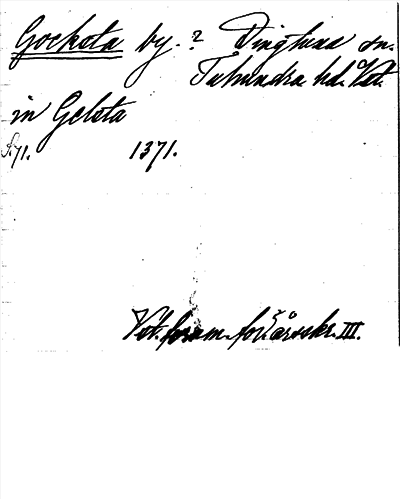 Gocksta by. ? Dingtuna sn.
Tuhundra hd. Vst.
in Gelsta
s. 71. 1371.
Vst. fornm. för. årsskr. III.